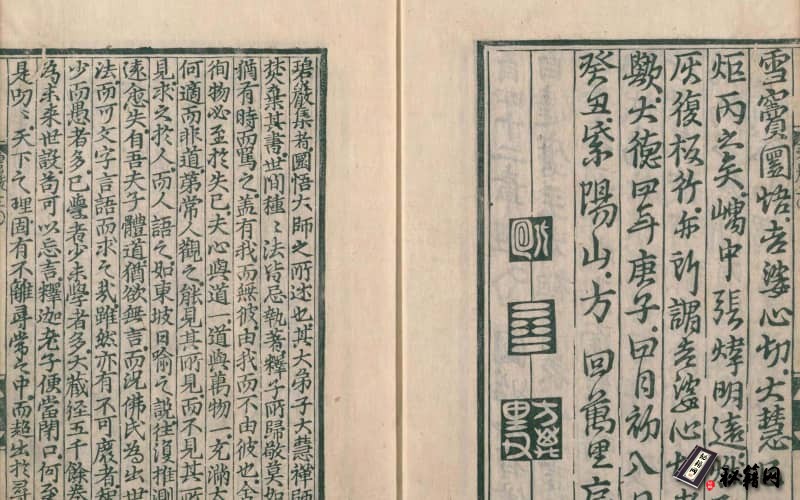 雪竇圜悟老婆心切大慧
炬丙之矣嵎中張煒明遠
灰復板行亦所謂老婆心
歟大德四年庚子四月初八
癸丑紫陽山方回萬里序
碧巖集者圜悟大師之所述也其大弟子大慧禪師
焚棄其書世間種〻法皆忌執著釋子所歸敬莫如
猶有時而罵之蓋有我而無彼由我而不由彼也
徇物必至於失己夫心與道一道與萬物一充滿太
何適而非道第常人觀之能見其所見而不見其所
見求之於人而人語之如東坡日喻之說往復推測
遠愈失自吾夫子體道猶欲無言而況佛氏為出世
法而可文字言語而求之哉雖然亦有不可廢者
少而愚者多已學者少未學者多大藏經五千餘卷
為未來世設苟可以忘言釋迦老子便當閉口何至
是叨〻天下之理固有不離尋常之中而超出於尋
秘籍网